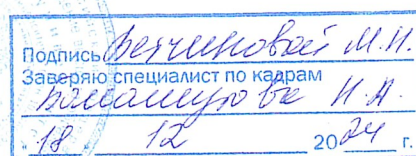 Подпись Ветчиновой М.Н.
Заверяю специалист по кадрам
Н.А.
"18" 12 2024 г.